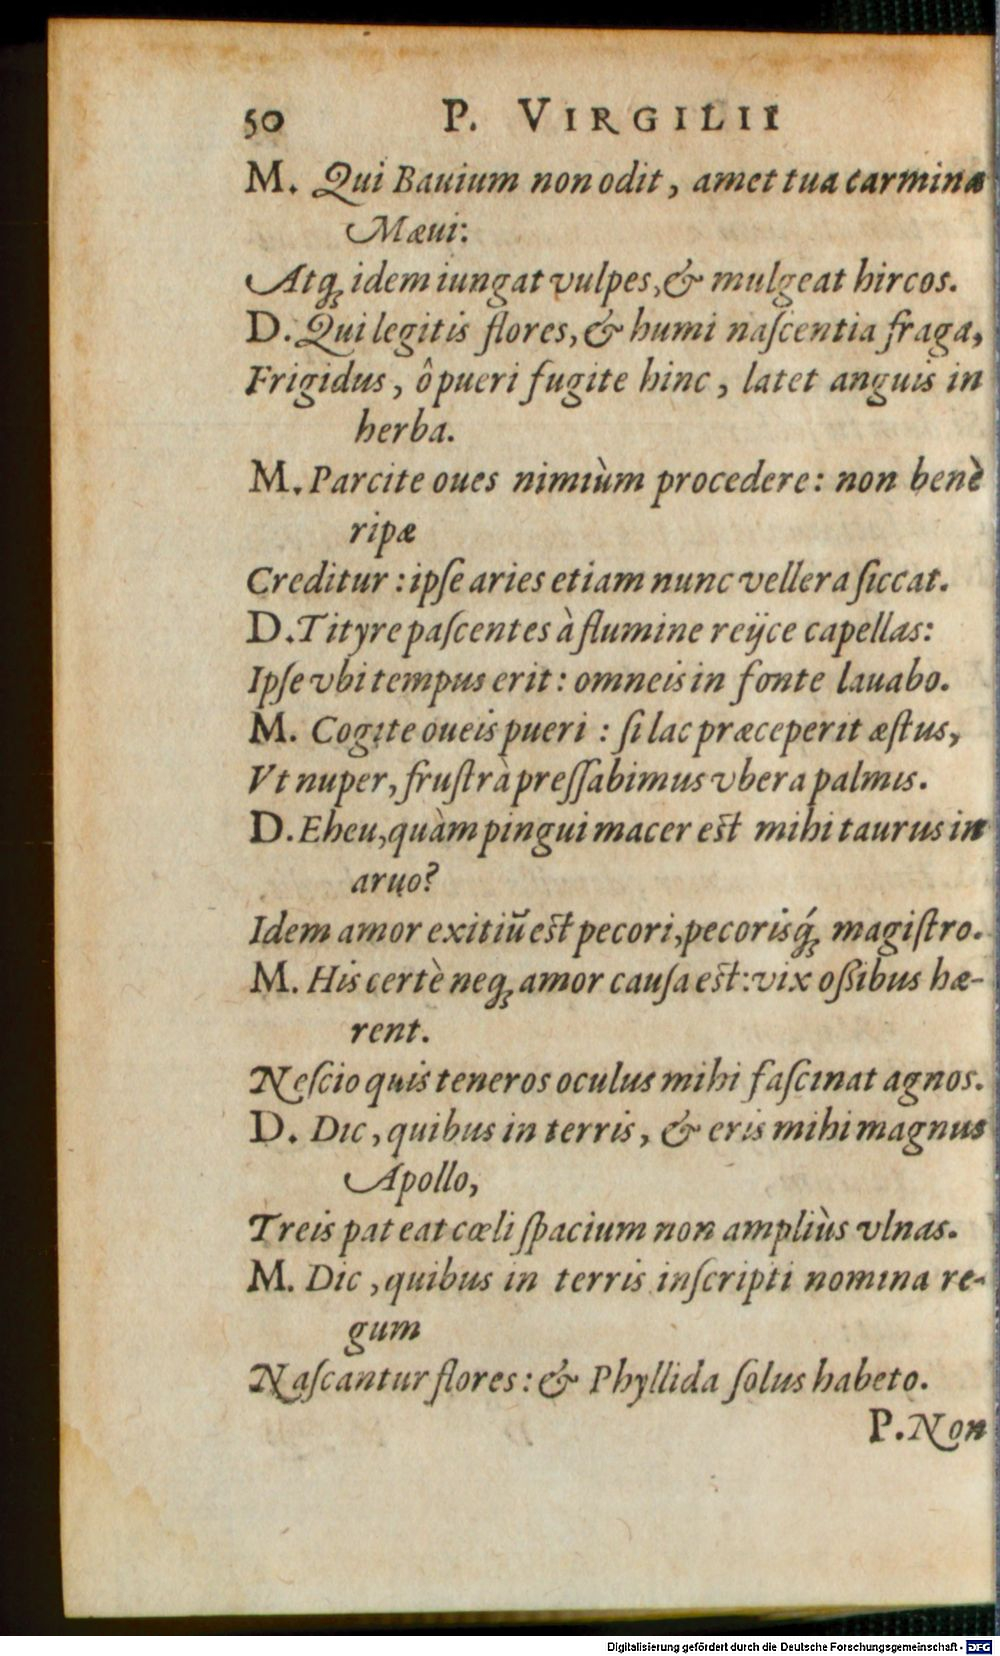 50 P. VIRGILII
M. Qui Bauium non odit, amet tua carmina
Mæui:
Atq; idem iungat vulpes, & mulgeat hircos.
D. Qui legitis flores, & humi naſcentia fraga,
Frigidus, ô pueri fugite hinc, latet anguis in
herba.
M. Parcite oues nimiùm procedere: non benè
ripæ
Creditur: ipſe aries etiam nunc vellera ſiccat.
D. Tityre paſcentes à flumine reijce capellas:
Ipſe vbi tempus erit: omneis in fonte lauabo.
M. Cogite oueis pueri: ſi lac præceperit æſtus,
Vt nuper, fruſtrà preſſabimus vbera palmis.
D. Eheu, quàm pingui macer eſt mihi taurus in
aruo?
Idem amor exitiũ eſt pecori, pecorisq́; magiſtro.
M. His certè neq; amor cauſa eſt: vix oßibus hæ-
rent.
Neſcio quis teneros oculus mihi faſcinat agnos.
D. Dic, quibus in terris, & eris mihi magnus
Apollo,
Treis pateat cœli ſpacium non ampliùs vlnas.
M. Dic, quibus in terris inſcripti nomina re-
gum
Naſcantur flores: & Phyllida ſolus habeto.
P. Non
Digitalisierung gefördert durch die Deutsche Forschungsgemeinschaft - DFG